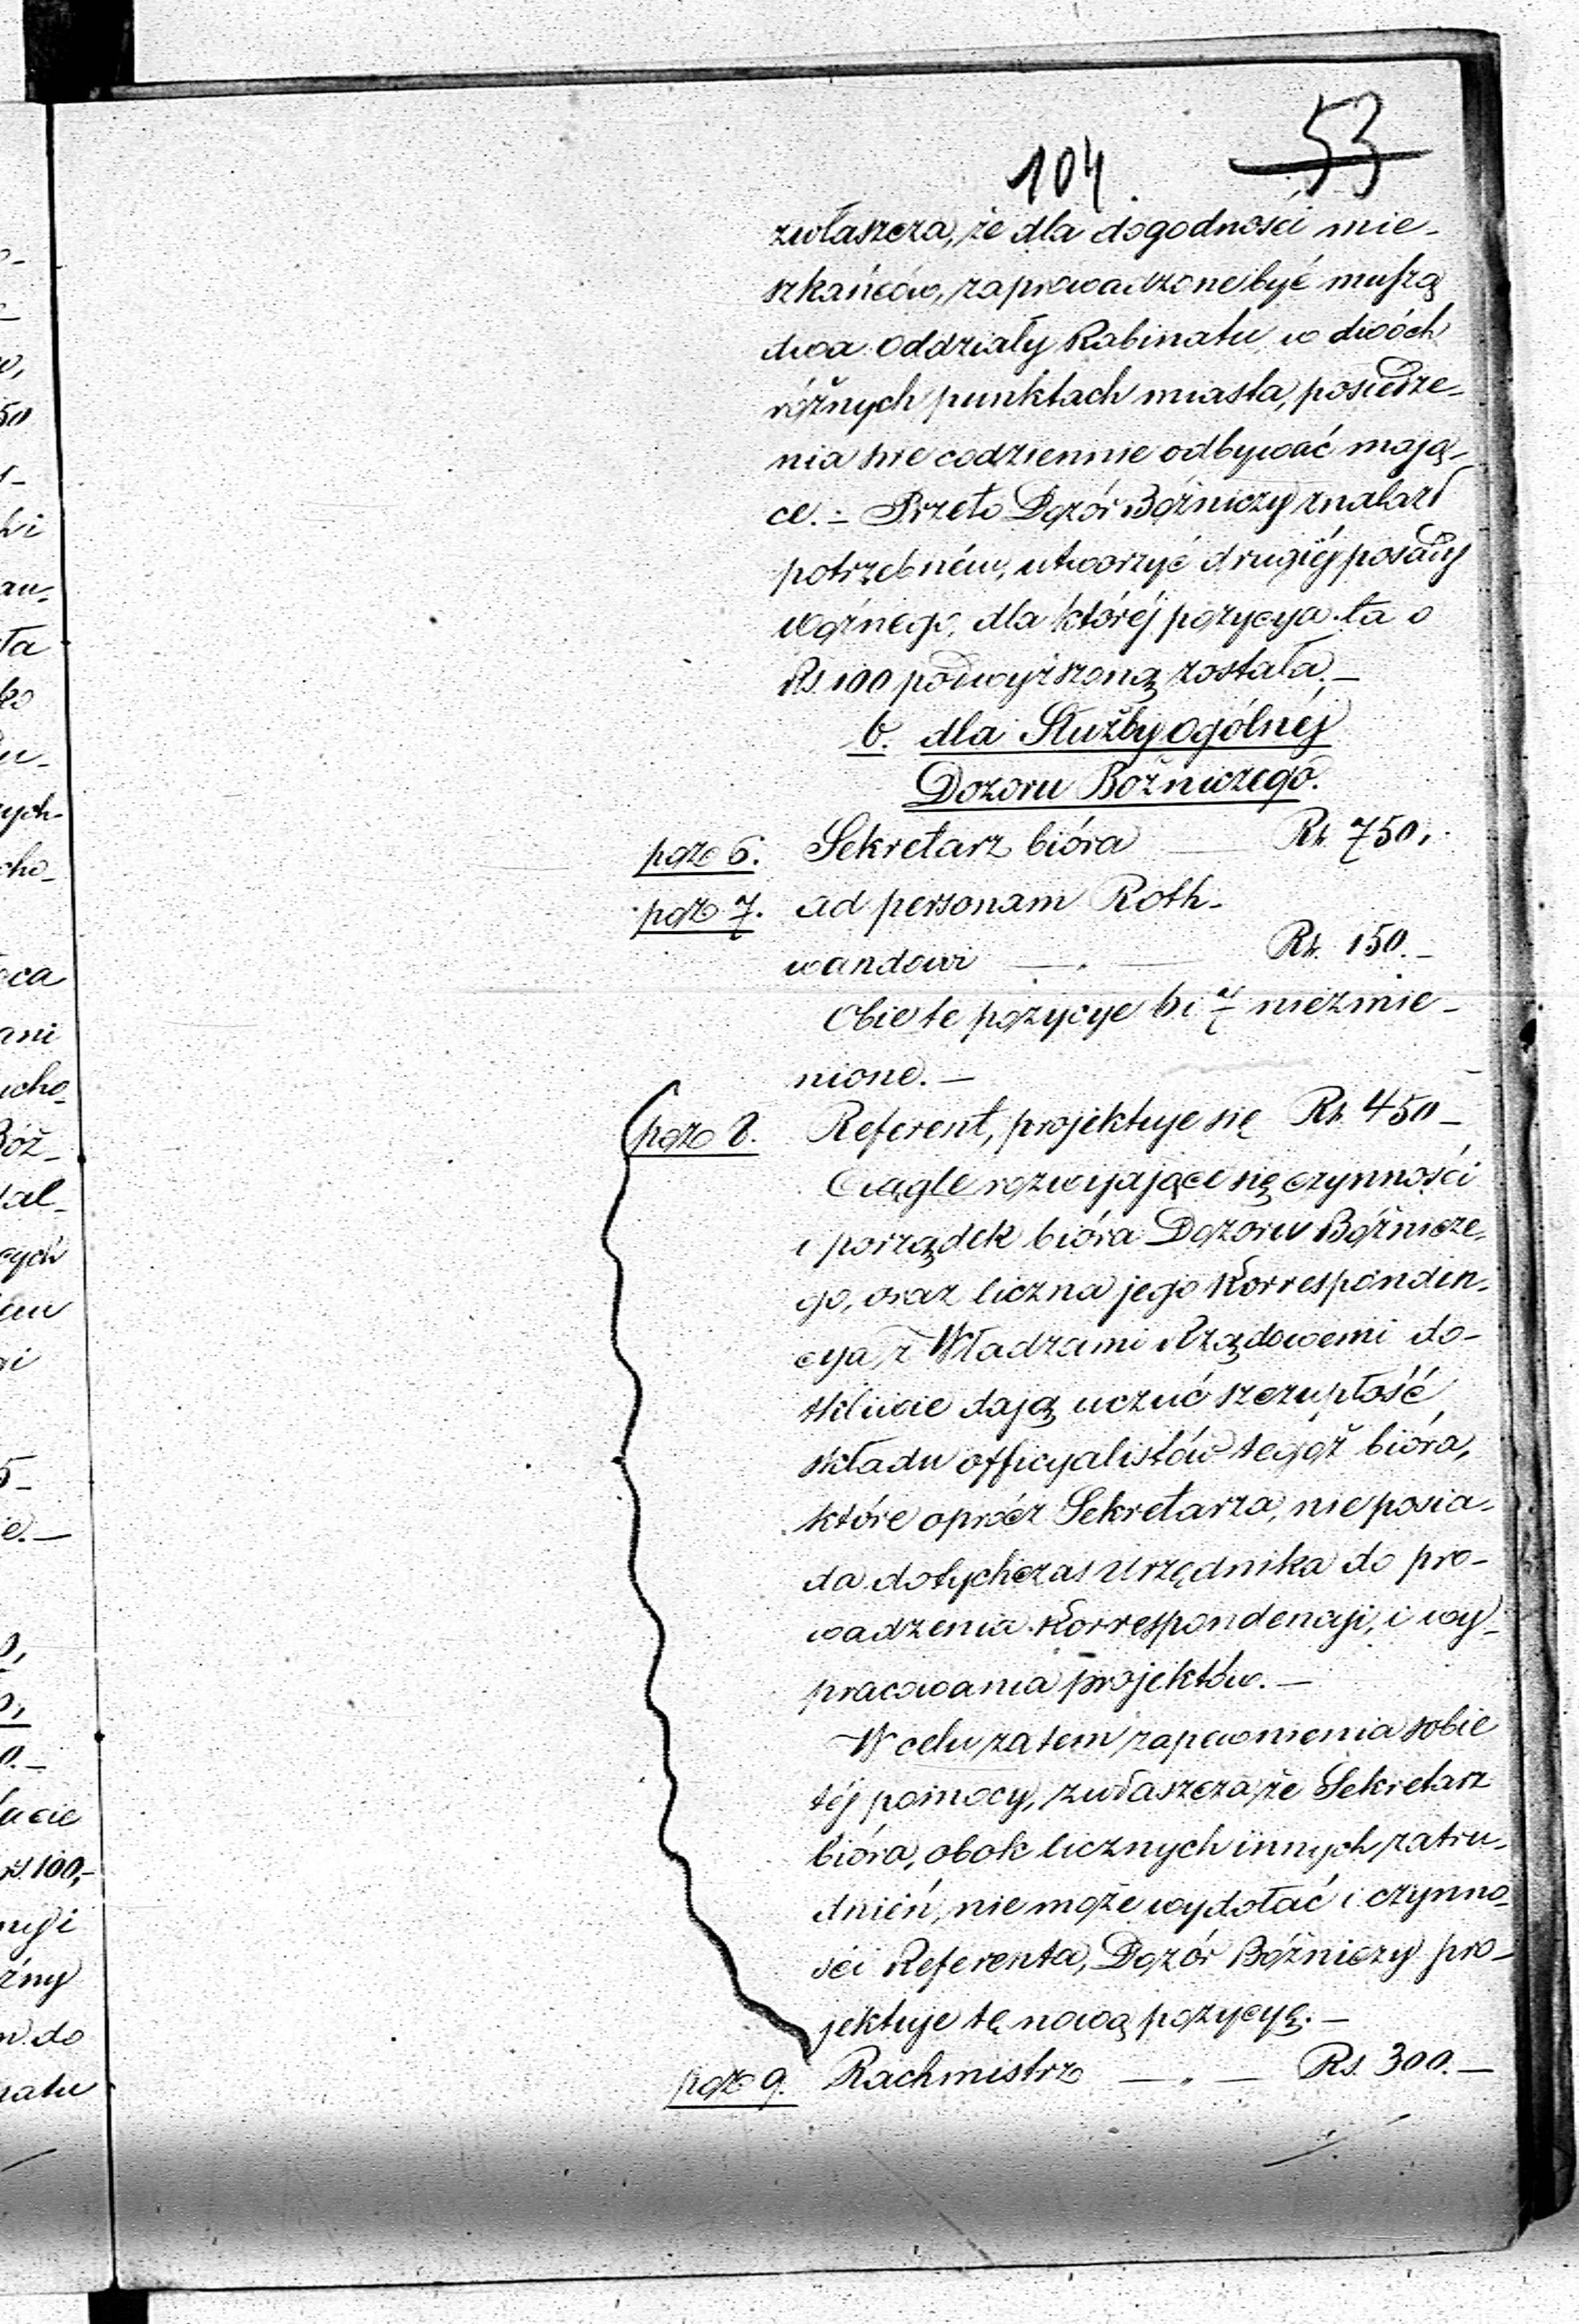 53
104.
zwłaszcza, że dla dogodności mie-
szkańców, zaprowadzone być muszą
dwa oddziały Rabinatu w dwóch
różnych punktach miasta, posiedze-
nia swe codziennie odbywać mają-
ce. – Przeto Dozór Bóżniczy znalazł
potrzebném, utworzyć drugiéj posady
woźnego, dla któréj pozycya ta o
Rs. 100 podwyższoną została. –
b. dla Służby ogólnéj
Dozoru Bóżniczego.
poz 6. Sekretarz bióra — Rs. 750,
poz 7. ad personam Roth-
wandowi — „ — Rs. 150. –
Obie te pozycye 6 i 7 niezmie-
nione. –
poz 8. Referent, projektuje się Rs. 450 –
Ciągle rozwijające się czynności
i porządek bióra Dozoru Bóżnicze-
go, oraz liczna jego Korresponden-
cya z Władzami Rządowemi do-
tkliwie dają uczuć szczupłość
składu officyalistów tegoż bióra,
które oprócz Sekretarza, nie posia-
da dotychczas Urzędnika do pro-
wadzenia Korrespondencyi, i wy-
pracowania projektów. –
W celu zatem zapewnienia sobie
téj pomocy, zwłaszcza że Sekretarz
bióra, obok licznych innych zatru-
dnień, nie może wydołać i czynno-
ści Referenta, Dozór Bóżniczy pro-
jektuje tę nową pozycyę. –
poz 9. Rachmistrz — „ — Rs. 300. –